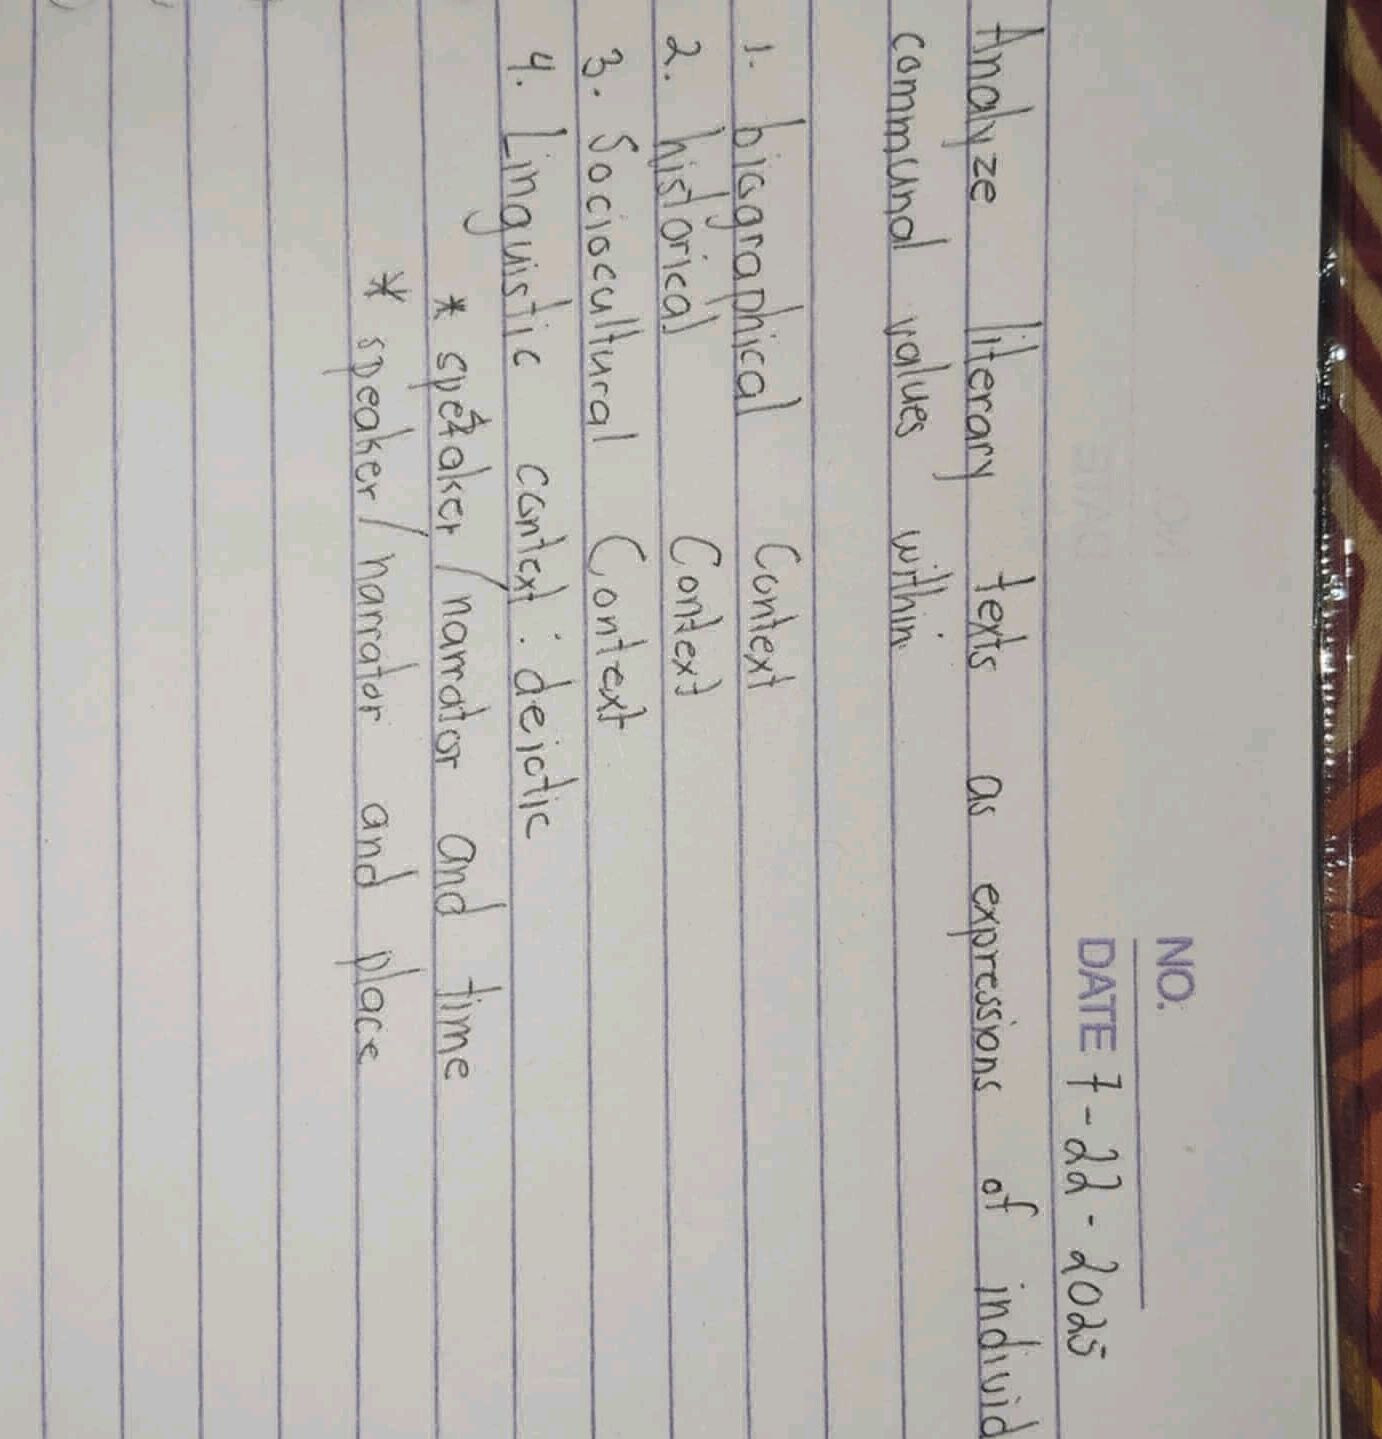 NO.
DATE 7-22-2025
Analyze literary texts as expressions of individ
communal values within
1. biographical Context
2. historical Context
3. Sociocultural Context
4. Linguistic context : deictic
* speaker/narrator and time
* speaker/narrator and place